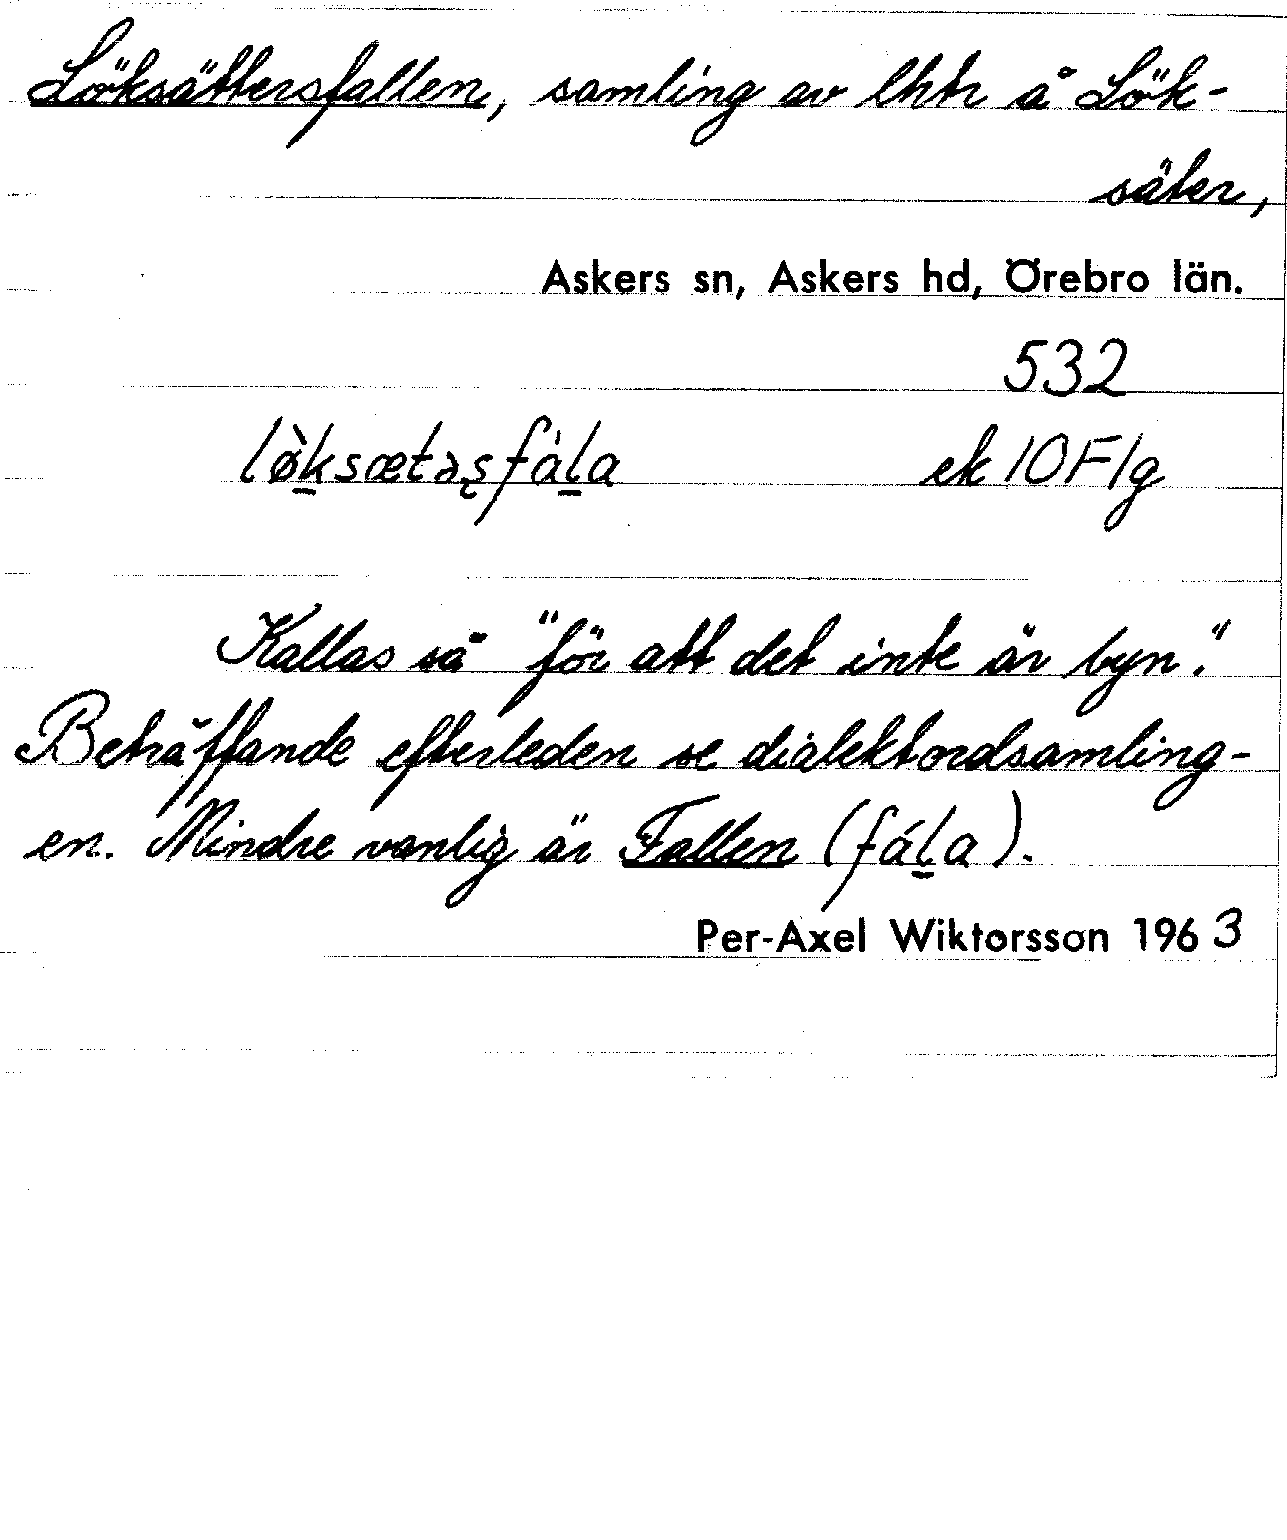 Löksättersfallen, samling av lhtr å Lök-
säter,
Askers sn, Askers hd, Örebro län.
532
lø̀ksætəʂfàla
ek 10F1g
Kallas så "för att det inte är byn."
Beträffande efterleden se dialektordsamling-
en. Mindre vanlig är Fallen (fála).
Per-Axel Wiktorsson 1963